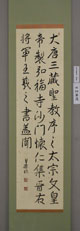 大唐三蔵聖教序之太宗文皇
帝製弘福寺沙門懐仁集晋右
将軍王羲之書蓋聞